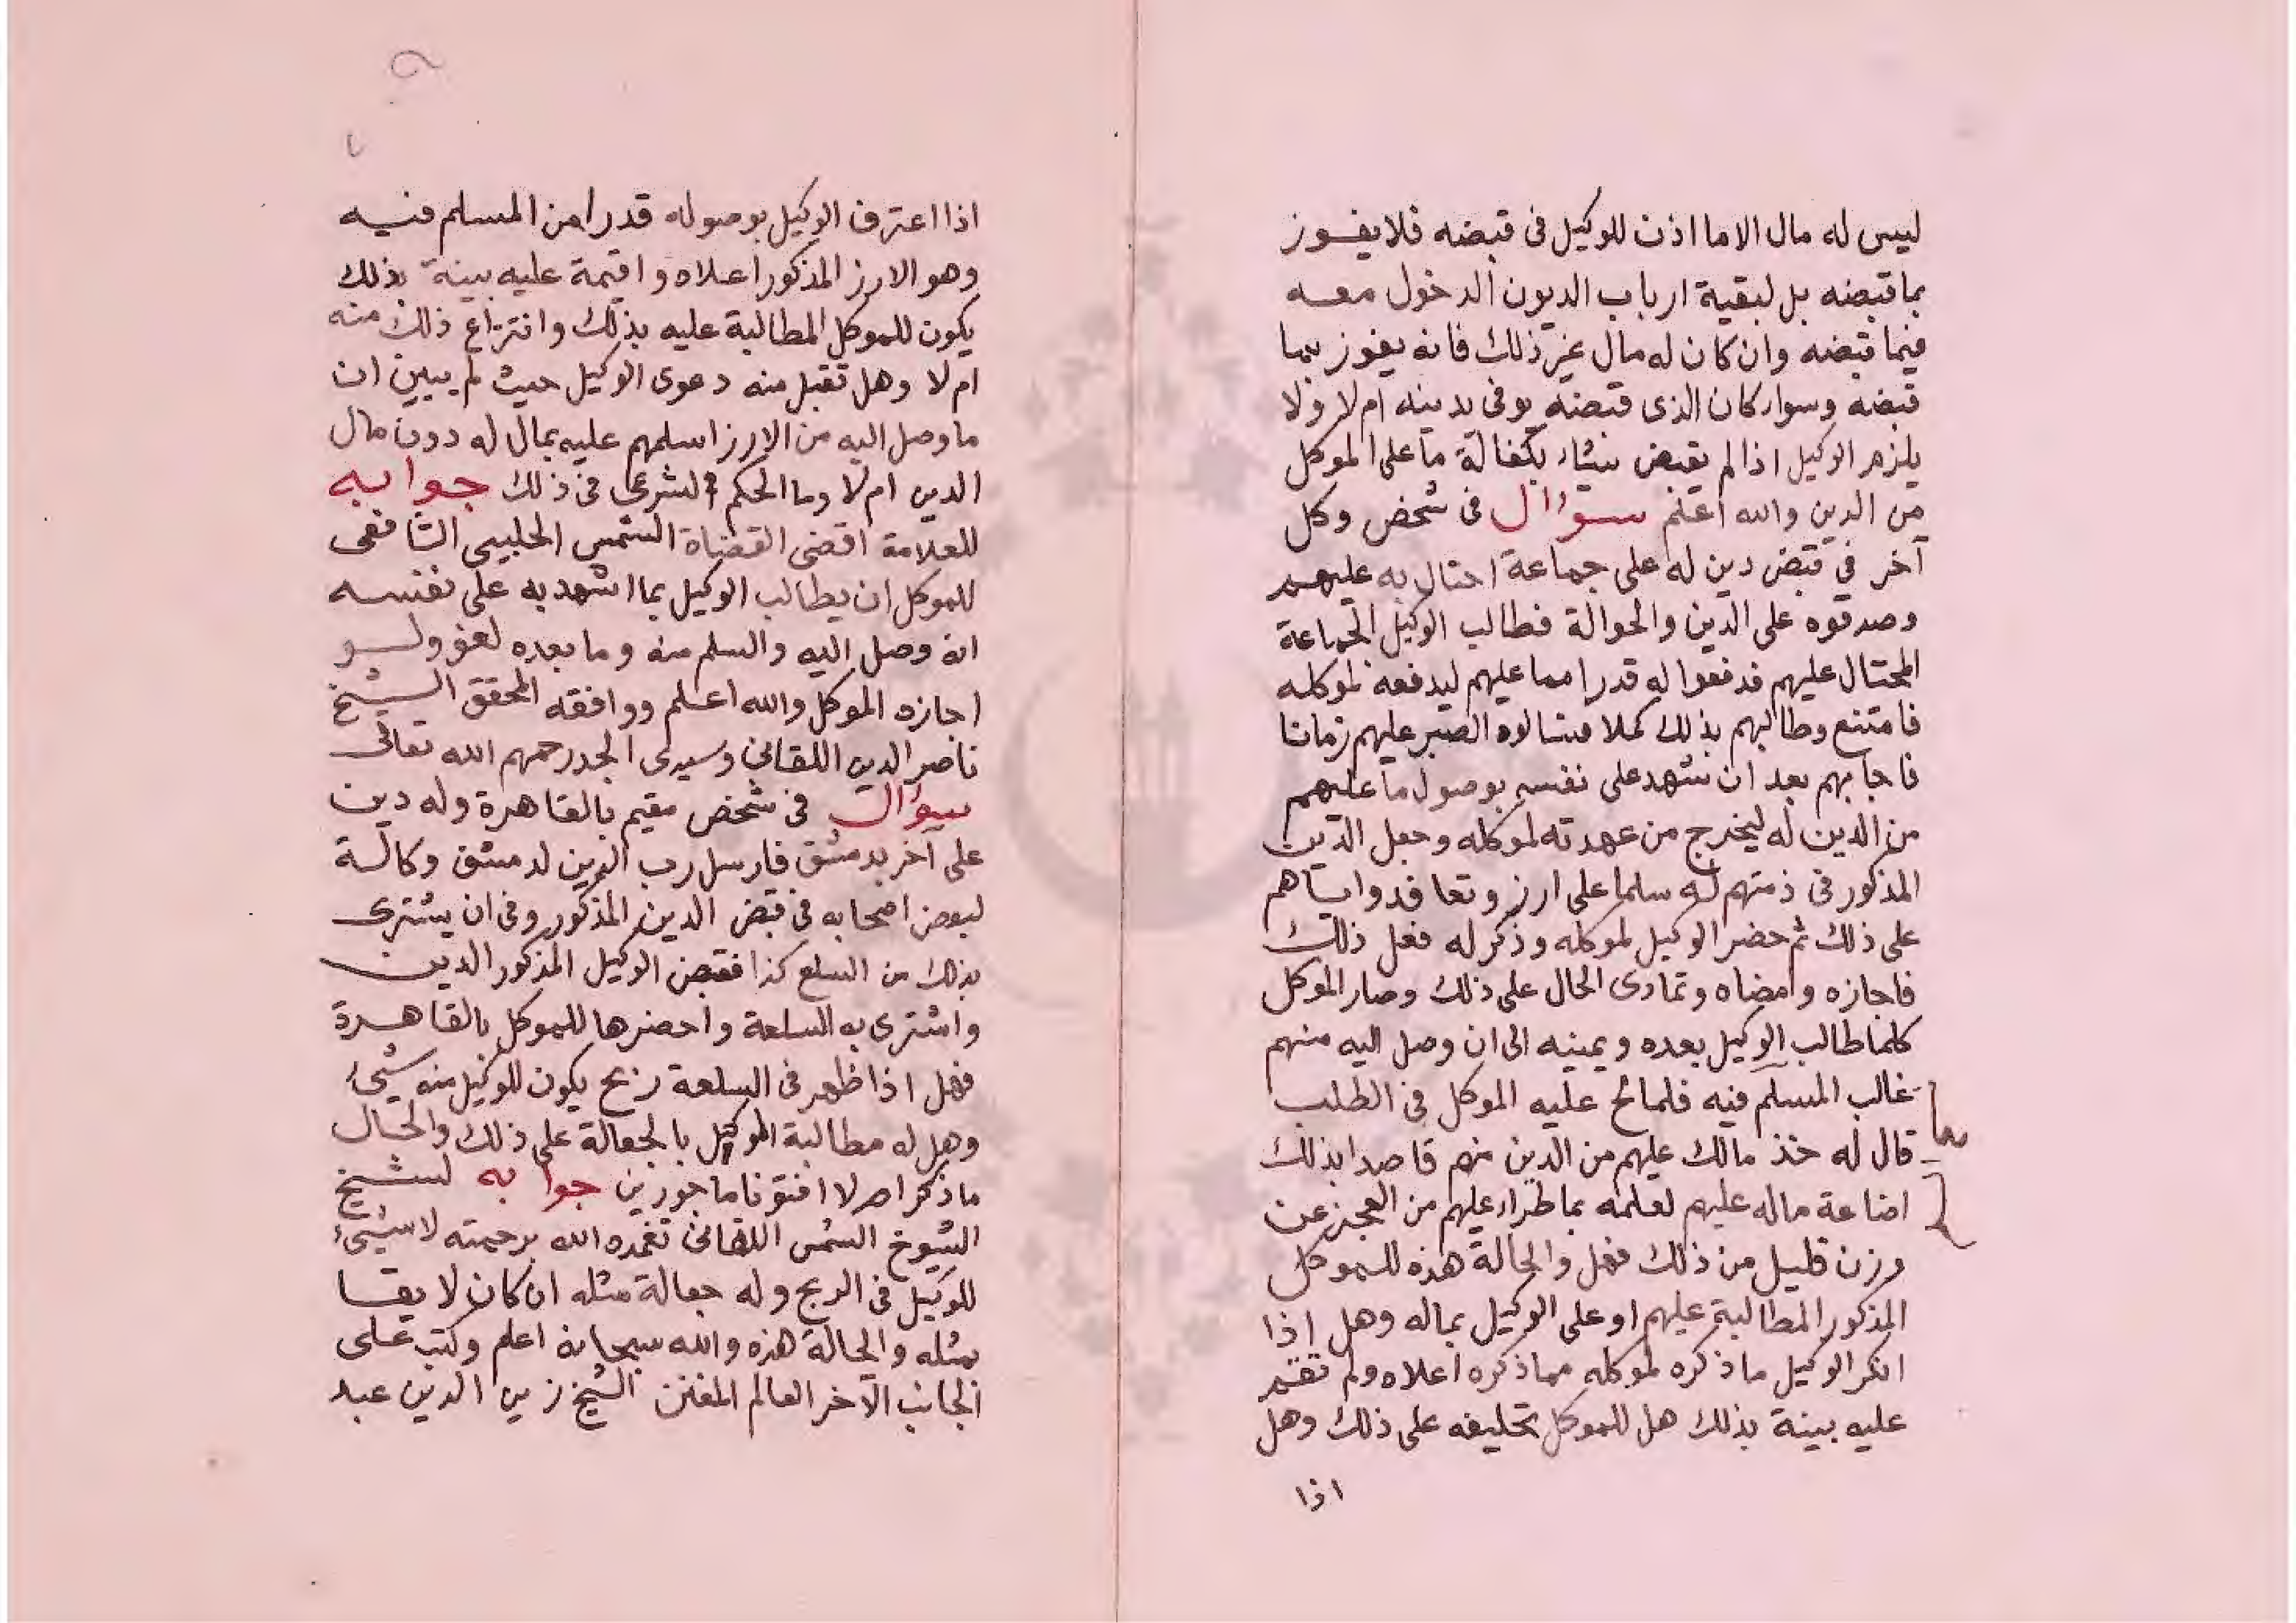 ليس له مال الا ما اذن للوكيل فى قبضه فلا يفوز
بما قبضه بل لبقية ارباب الديون الدخول معه
فيما قبضه وان كان له مال غير ذلك فانه يفوز بما
قبضه وسواء كان الذى قبضه يوفى بدينه ام لا ولا
يلزم الوكيل اذا لم يقبض شيئاء بكفالة ما على الموكل
من الدين والله اعلم سؤال فى شخص وكل
آخر فى قبض دين له على جماعة احتال به عليهم
وصدقوه على الدين والحوالة فطالب الوكيل الجماعة
المحتال عليهم فدفعوا له قدرا مما عليهم ليدفعه لموكله
فامتنع وطالبهم بذلك كملا فسالوه الصبر عليهم زمانا
فاجابهم بعد ان شهد على نفسه بوصول ما عليهم
من الدين له ليخرج من عهدته لموكله وجعل الدين
المذكور فى ذمتهم له سلما على ارز وتعاقدوا اياهم
على ذلك ثم حضر الوكيل لموكله وذكر له فعل ذلك
فاجازه وامضاه وتمادى الحال على ذلك وصار الموكل
كلما طالب الوكيل يعده ويمينه الى ان وصل اليه منهم
غالب المسلم فيه فلما لح عليه الموكل فى الطلب
قال له خذ مالك عليهم من الدين منهم قاصدا بذلك
اضاعة ماله عليهم لعلمه بما طراء عليهم من العجز عن
وزن قليل من ذلك فهل والحالة هذه للموكل
المذكور المطالبة عليهم او على الوكيل بماله وهل اذا
انكر الوكيل ما ذكره لموكله مما ذكره اعلاه ولم تقم
عليه بينة بذلك هل للموكل تحليفه على ذلك وهل
اذا
اذا اعترف الوكيل بوصوله قدرا من المسلم فيه
وهو الارز المذكور اعلاه واقيمة عليه بينة بذلك
يكون للموكل المطالبة عليه بذلك وانتزاع ذلك منه
ام لا وهل تقبل منه دعوى الوكيل حيث لم يبين ان
ما وصل اليه من الارز اسلمهم عليه بمال له دون مال
الدين ام لا وما الحكم الشرعى فى ذلك جوابه
للعلامة اقضى القضاة الشمس الحليبى الشافعى
للموكل ان يطالب الوكيل بما اشهد به على نفسه
انه وصل اليه والسلم منه وما بعده لغو ولو
اجازه الموكل والله اعلم ووافقه المحقق الشيخ
ناصر الدين اللقانى وسيدى الجد رحمهم الله تعالى
سؤال فى شخص مقيم بالقاهرة وله دين
على آخر بدمشق فارسل رب الدين لدمشق وكالة
لبعض اصحابه فى قبض الدين المذكور وفى ان يشترى
بذلك من السلع كذا فقبض الوكيل المذكور الدين
واشترى به السلعة واحضرها للموكل بالقاهرة
فهل اذا ظهر فى السلعة ربح يكون للوكيل منه شيئ
وهل له مطالبة الموكل بالجعالة على ذلك والحال
ما ذكر ام لا افتونا ماجورين جوابه لشيخ
الشيوخ الشمس اللقانى تغمده الله برحمته لا شيئ
للوكيل فى الربح وله جعالة مثله ان كان لا يقا
بمثله والحالة هذه والله سبحانه اعلم وكتب على
الجانب الآخر العالم المفنن الشيخ زين الدين عبد